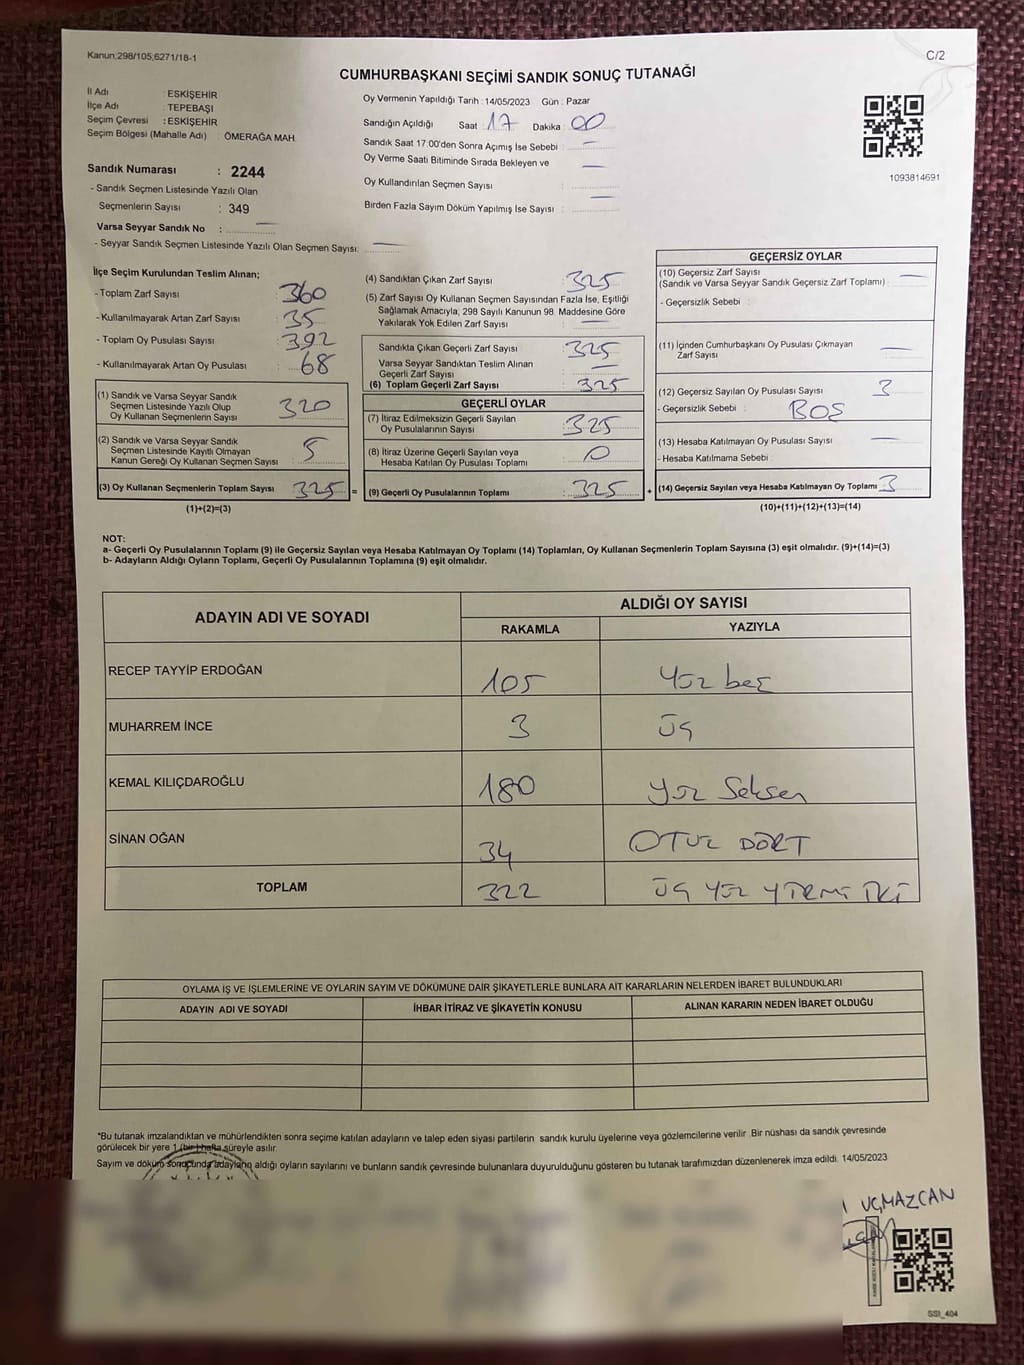 Kanun;298/105,6271/18-1
C/2
CUMHURBAŞKANI SEÇİMİ SANDIK SONUÇ TUTANAĞI
İl Adı : ESKİŞEHİR
İlçe Adı : TEPEBAŞI
Seçim Çevresi : ESKİŞEHİR
Seçim Bölgesi (Mahalle Adı) : ÖMERAĞA MAH.
Sandık Numarası : 2244
- Sandık Seçmen Listesinde Yazılı Olan
Seçmenlerin Sayısı : 349
Varsa Seyyar Sandık No : —
- Seyyar Sandık Seçmen Listesinde Yazılı Olan Seçmen Sayısı: —
Oy Vermenin Yapıldığı Tarih : 14/05/2023 Gün : Pazar
Sandığın Açıldığı Saat : 17 Dakika : 00
Sandık Saat 17:00'den Sonra Açımış İse Sebebi : —
Oy Verme Saati Bitiminde Sırada Bekleyen ve —
Oy Kullandırılan Seçmen Sayısı :
Birden Fazla Sayım Döküm Yapılmış İse Sayısı : —
1093814691
İlçe Seçim Kurulundan Teslim Alınan;
- Toplam Zarf Sayısı : 360
- Kullanılmayarak Artan Zarf Sayısı : 35
- Toplam Oy Pusulası Sayısı : 392
- Kullanılmayarak Artan Oy Pusulası : 68
(1) Sandık ve Varsa Seyyar Sandık
Seçmen Listesinde Yazılı Olup
Oy Kullanan Seçmenlerin Sayısı : 320
(2) Sandık ve Varsa Seyyar Sandık
Seçmen Listesinde Kayıtlı Olmayan
Kanun Gereği Oy Kullanan Seçmen Sayısı : 5
(3) Oy Kullanan Seçmenlerin Toplam Sayısı : 325 =
(1)+(2)=(3)
(4) Sandıktan Çıkan Zarf Sayısı : 325
(5) Zarf Sayısı Oy Kullanan Seçmen Sayısından Fazla İse, Eşitliği
Sağlamak Amacıyla; 298 Sayılı Kanunun 98. Maddesine Göre
Yakılarak Yok Edilen Zarf Sayısı : —
Sandıkta Çıkan Geçerli Zarf Sayısı : 325
Varsa Seyyar Sandıktan Teslim Alınan
Geçerli Zarf Sayısı : —
(6) Toplam Geçerli Zarf Sayısı : 325
GEÇERLİ OYLAR
(7) İtiraz Edilmeksizin Geçerli Sayılan
Oy Pusulalarının Sayısı : 325
(8) İtiraz Üzerine Geçerli Sayılan veya
Hesaba Katılan Oy Pusulaları Toplamı : 0
(9) Geçerli Oy Pusulalarının Toplamı : 325 +
GEÇERSİZ OYLAR
(10) Geçersiz Zarf Sayısı
(Sandık ve Varsa Seyyar Sandık Geçersiz Zarf Toplamı) : —
- Geçersizlik Sebebi :
(11) İçinden Cumhurbaşkanı Oy Pusulası Çıkmayan
Zarf Sayısı : —
(12) Geçersiz Sayılan Oy Pusulası Sayısı : 3
- Geçersizlik Sebebi : BOŞ
(13) Hesaba Katılmayan Oy Pusulası Sayısı : —
- Hesaba Katılmama Sebebi :
(14) Geçersiz Sayılan veya Hesaba Katılmayan Oy Toplamı : 3
(10)+(11)+(12)+(13)=(14)
NOT:
a- Geçerli Oy Pusulalarının Toplamı (9) ile Geçersiz Sayılan veya Hesaba Katılmayan Oy Toplamı (14) Toplamları, Oy Kullanan Seçmenlerin Toplam Sayısına (3) eşit olmalıdır. (9)+(14)=(3)
b- Adayların Aldığı Oyların Toplamı, Geçerli Oy Pusulalarının Toplamına (9) eşit olmalıdır.
ADAYIN ADI VE SOYADI
ALDIĞI OY SAYISI
RAKAMLA YAZIYLA
RECEP TAYYİP ERDOĞAN 105 Yüz beş
MUHARREM İNCE 3 Üç
KEMAL KILIÇDAROĞLU 180 Yüz Seksen
SİNAN OĞAN 34 OTUZ DÖRT
TOPLAM 322 ÜÇ YÜZ YİRMİ İKİ
OYLAMA İŞ VE İŞLEMLERİNE VE OYLARIN SAYIM VE DÖKÜMÜNE DAİR ŞİKAYETLERLE BUNLARA AİT KARARLARIN NELERDEN İBARET BULUNDUKLARI
ADAYIN ADI VE SOYADI İHBAR İTİRAZ VE ŞİKAYETİN KONUSU ALINAN KARARIN NEDEN İBARET OLDUĞU
*Bu tutanak imzalandıktan ve mühürlendikten sonra seçime katılan adayların ve talep eden siyasi partilerin sandık kurulu üyelerine veya gözlemcilerine verilir. Bir nüshası da sandık çevresinde
görülecek bir yere 1 (bir) hafta süreyle asılır.
Sayım ve döküm sonucunda adayların aldığı oyların sayılarını ve bunların sandık çevresinde bulunanlara duyurulduğunu gösteren bu tutanak tarafımızdan düzenlenerek imza edildi. 14/05/2023
UÇMAZCAN
SSI_404